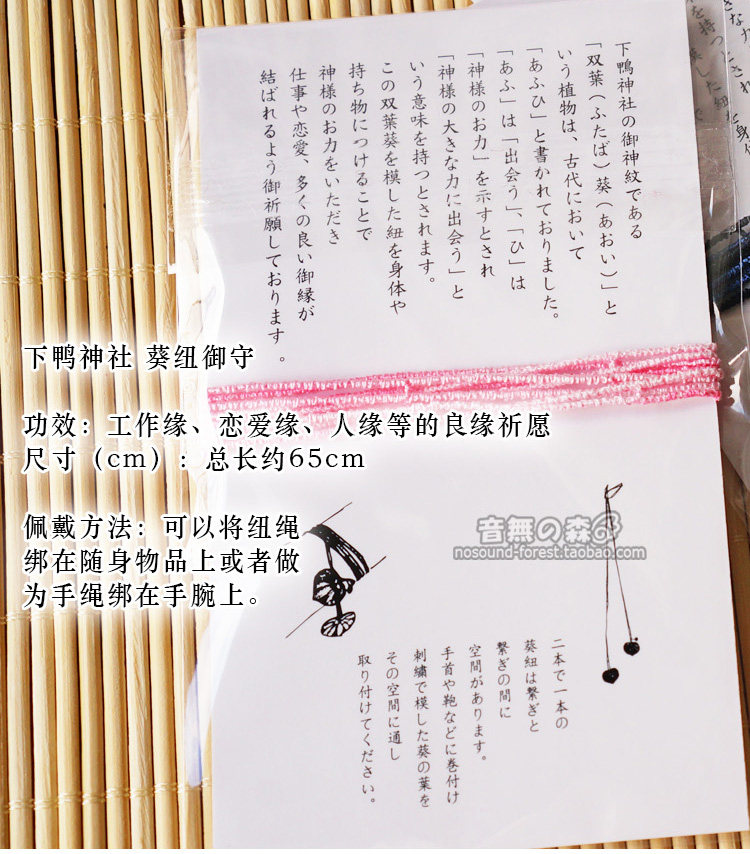 下鴨神社の御神紋である
「双葉（ふたば）葵（あおい）」と
いう植物は、古代において
「あふひ」と書かれておりました。
「あふ」は「出会う」、「ひ」は
「神様のお力」を示すとされ
「神様の大きな力に出会う」と
いう意味を持つとされます。
この双葉葵を模した紐を身体や
持ち物につけることで
神様のお力をいただき
仕事や恋愛、多くの良い御縁が
結ばれるよう御祈願しております。
下鸭神社 葵纽御守
功效：工作缘、恋爱缘、人缘等的良缘祈愿
尺寸（cm）：总长约65cm
佩戴方法：可以将纽绳
绑在随身物品上或者做
为手绳绑在手腕上。
音無の森
nosound-forest.taobao.com
二本で一本の
葵紐は繋ぎと
繋ぎの間に
空間があります。
手首や鞄などに巻付け
刺繍で模した葵の葉を
その空間に通し
取り付けてください。